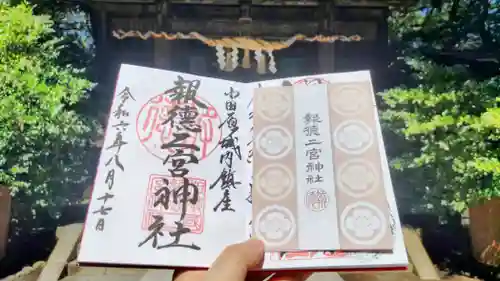 小田原城内鎮座
報徳二宮神社
令和六年八月十七日
報徳二宮神社
報徳二宮神社